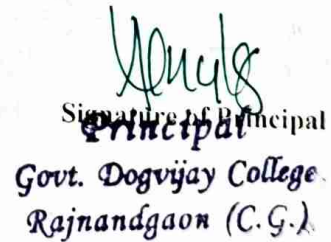 Signature of Principal
Principal
Govt. Dogvijay College
Rajnandgaon (C.G.)